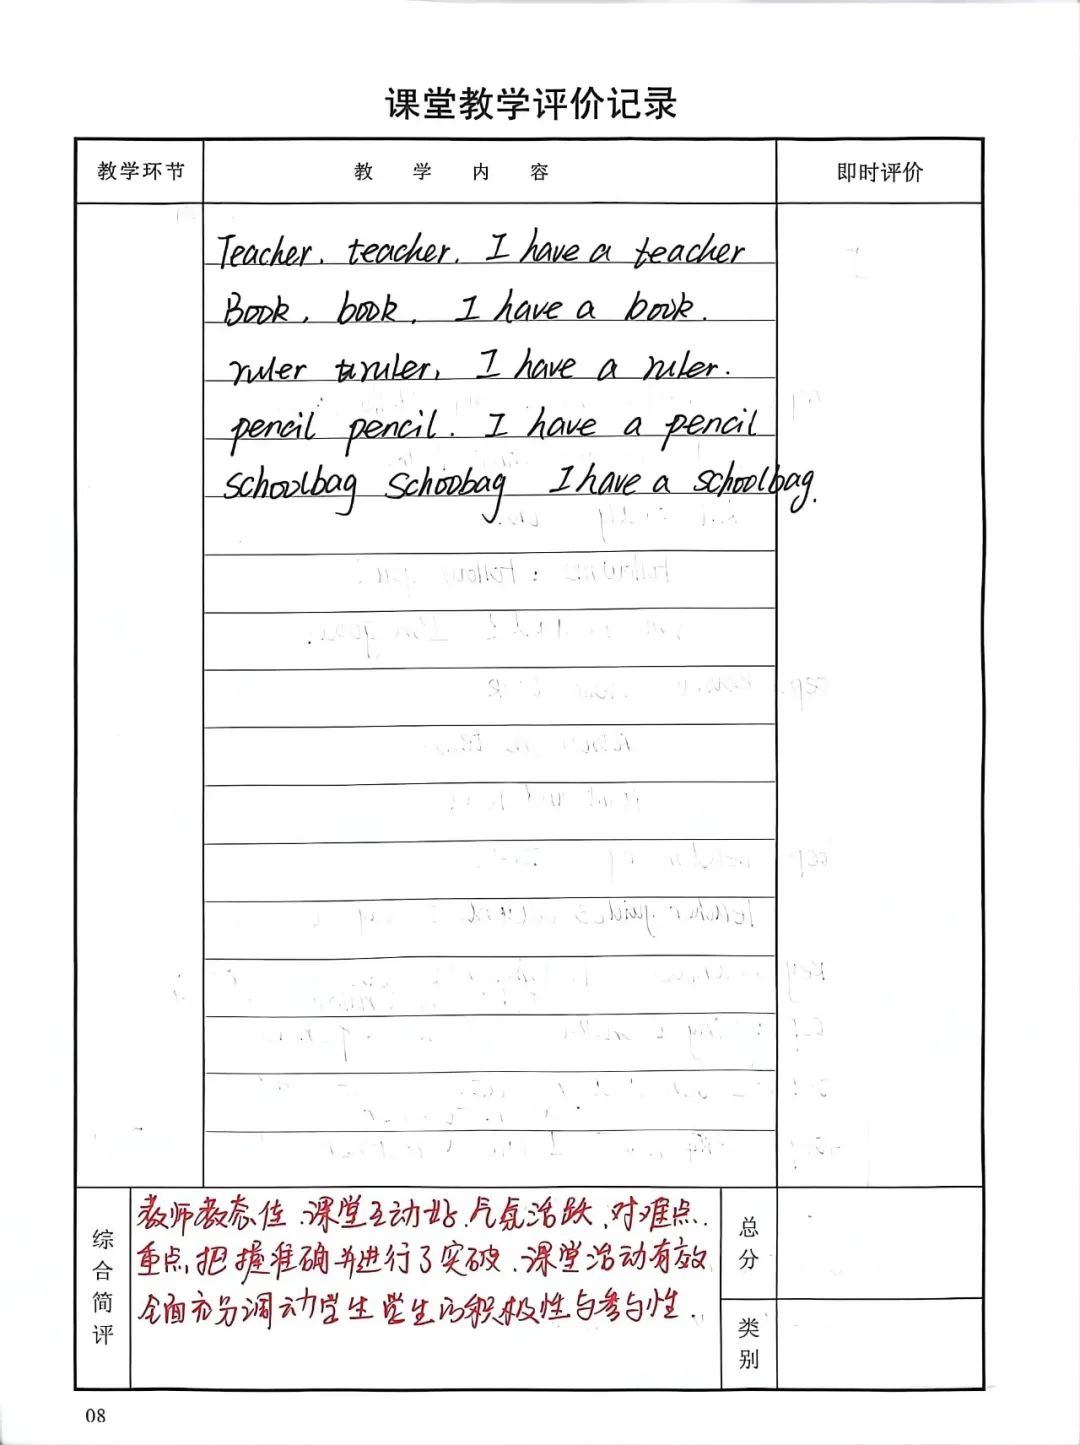 课堂教学评价记录
教学环节 教学内容 即时评价
Teacher. teacher. I have a teacher
Book. book. I have a book.
ruler ruler, I have a ruler.
pencil pencil. I have a pencil
schoolbag schoobag I have a schoolbag.
综合简评
教师教态佳.课堂互动好.气氛活跃.对难点.
重点,把握准确并进行了突破.课堂活动有效
全面充分调动学生学生的积极性与参与性.
总分
类别
08